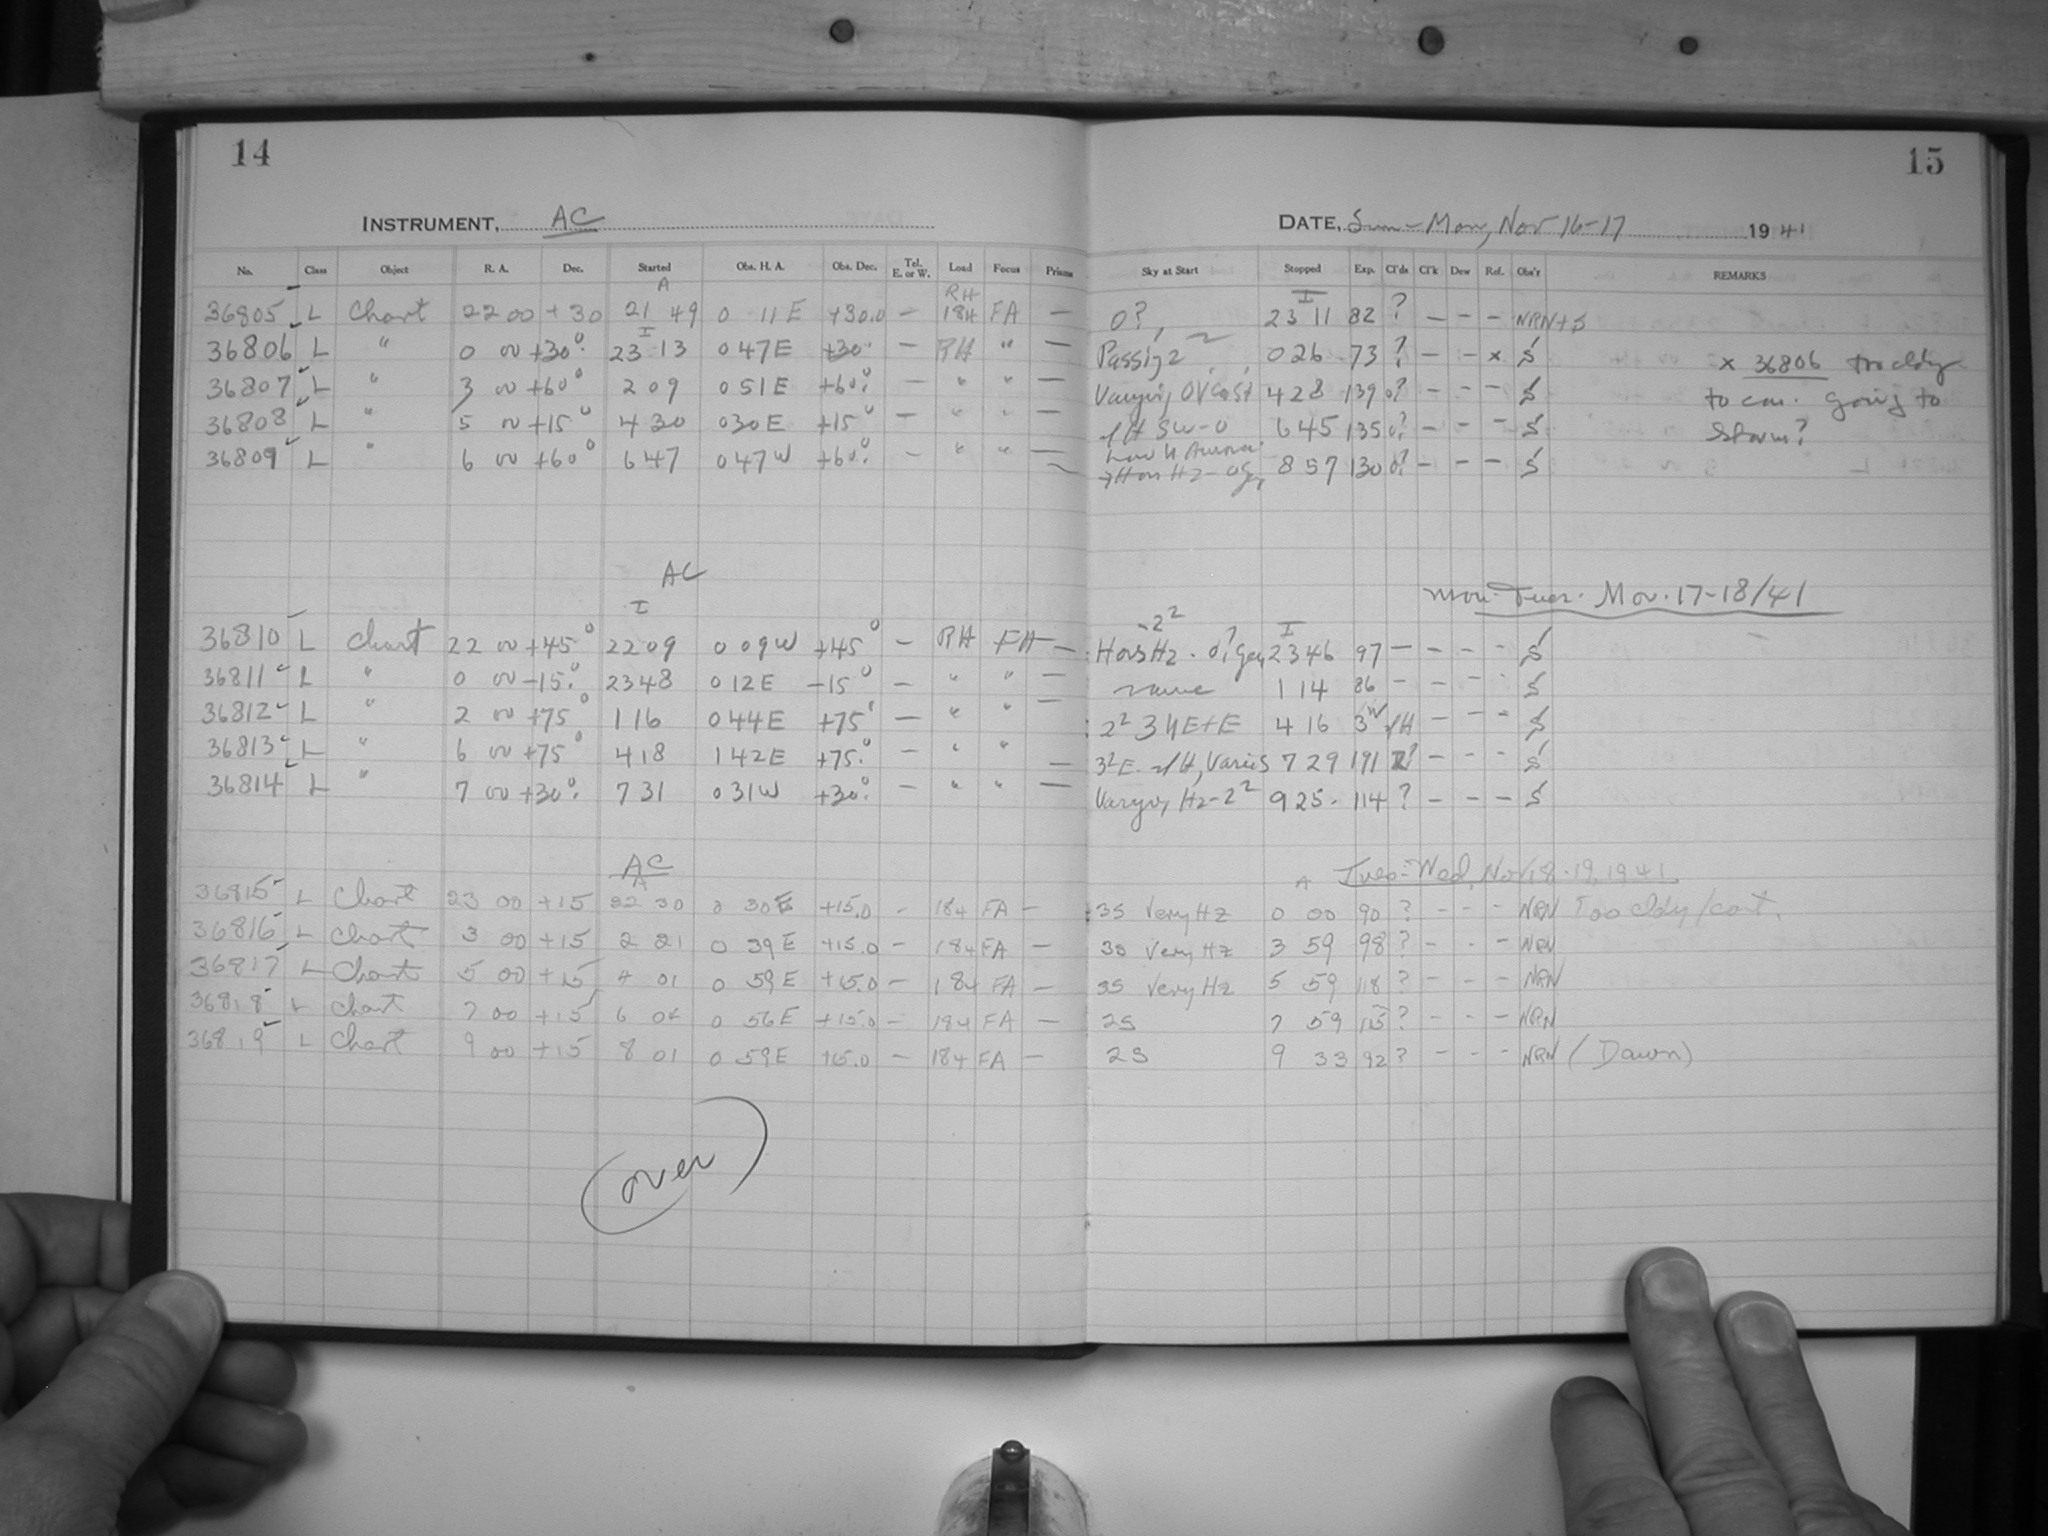 14
15
INSTRUMENT, AC
DATE, Sun-Mon, Nov 16-17 1941
No. Class Object R. A. Dec. Started Obs. H. A. Obs. Dec. Tel. E. or W. Load Focus Prisms Sky at Start Stopped Exp. Cl'ds Cl'k Dew Ref. Obs'r REMARKS
A RH I
36805 L Chart 22 00 +30 21 49 0 11 E +30.0 — 184 FA — 0? 23 11 82 ? — — — NRN+S
I
36806 L " 0 00 +30° 23 13 0 47 E +30 — RH " — 0 26 73 ? — — x S x 36806 too cldy
36807 L " 3 00 +60° 2 09 0 51 E +60° — " " — Varying Ovcast 4 28 139 0? — — — S to con. going to
36808 L " 5 00 +15° 4 30 0 30 E +15° — " " — SW-0 6 45 135 0? — — — S storm?
36809 L " 6 00 +60° 6 47 0 47 W +60° — " " — Low N Aurora Hz 8 57 130 0? — — — S
AC
Mon-Tues. Nov. 17-18/41
I -2² I
36810 L Chart 22 00 +45° 22 09 0 09 W +45° — RH FA — Hz 23 46 97 — — — - S
36811 L " 0 00 -15° 23 48 0 12 E -15° — " " — same 1 14 86 - — - - S
36812 L " 2 00 +75° 1 16 0 44 E +75° — " " — 2² 3 NE+E 4 16 — - - S
36813 L " 6 00 +75° 4 18 1 42 E +75° — " " — 3² E. 7 29 191 ? — - - S
36814 L " 7 00 +30° 7 31 0 31 W +30° — " " — Varying Hz-2² 9 25 114 ? — — — S
AC
Tues-Wed, Nov 18-19, 1941
A A
36815 L Chart 23 00 +15 22 30 0 30 E +15.0 - 184 FA — 3S Very Hz 0 00 90 ? - - - NRN Too cldy/cont.
36816 L Chart 3 00 +15 2 21 0 39 E +15.0 — 184 FA — 3S Very Hz 3 59 98 ? - - — NRN
36817 L Chart 5 00 +15 4 01 0 59 E +15.0 — 184 FA — 3S Very Hz 5 59 118 ? - - - NRN
36818 L Chart 7 00 +15 6 04 0 56 E +15.0 — 184 FA — 2S 7 59 115 ? - - — NRN
36819 L Chart 9 00 +15 8 01 0 59 E +15.0 — 184 FA — 2S 9 33 92 ? - - - NRN (Dawn)
(over)